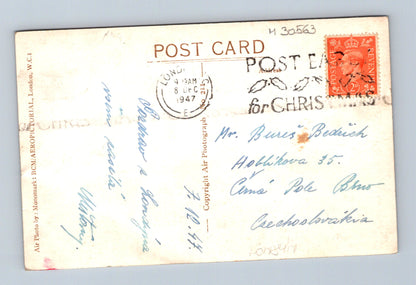 M 30563
POST CARD
LONDON
4 15 AM
8 DEC
1947
E
POST EARLY
for CHRISTMAS
Air Photo by: Mansmark: RCM/AEROPICTORIAL, London, W.C.1
Copyright Air Photograph No.
Pozdrav z Londýna
7. 12. 47.
Mr. Bureš Bedřich
Hoblíkova 35.
Černá Pole Brno
Czechoslovakia